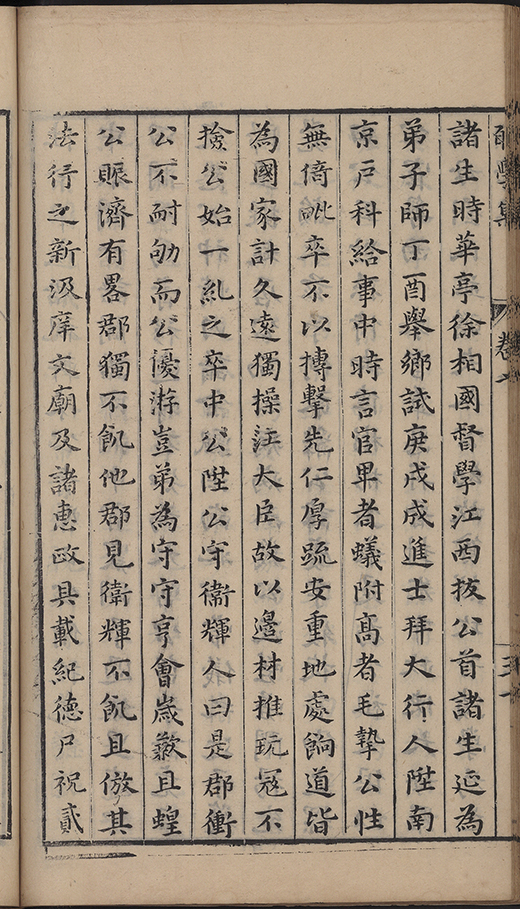 諸生時華亭徐相國督學江西拔公首諸生延為
弟子師丁酉舉鄉試庚戌成進士拜大行人陞南
京戶科給事中時言官卑者蟻附高者毛摯公性
無倚毗卒不以搏擊先仁厚疏安重地處餉道皆
為國家計久遠獨操江大臣故以邊材推玩寇不
撿公始一糺之卒中公陞公守衞輝人曰是郡衝
公不耐劬而公優游豈弟為守守亨會歲歉且蝗
公賑濟有畧郡獨不飢他郡見衞輝不飢且倣其
法行之新汲庠文廟及諸惠政具載紀德尸祝貳